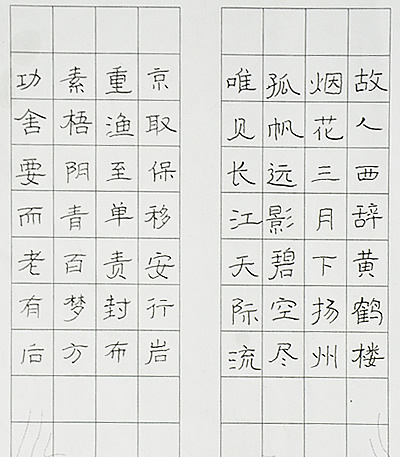 故人西辞黄鹤楼
烟花三月下扬州
孤帆远影碧空尽
唯见长江天际流
京取保移安行岩
重渔至单责封布
素梧阴青百梦方
功舍要而老有后